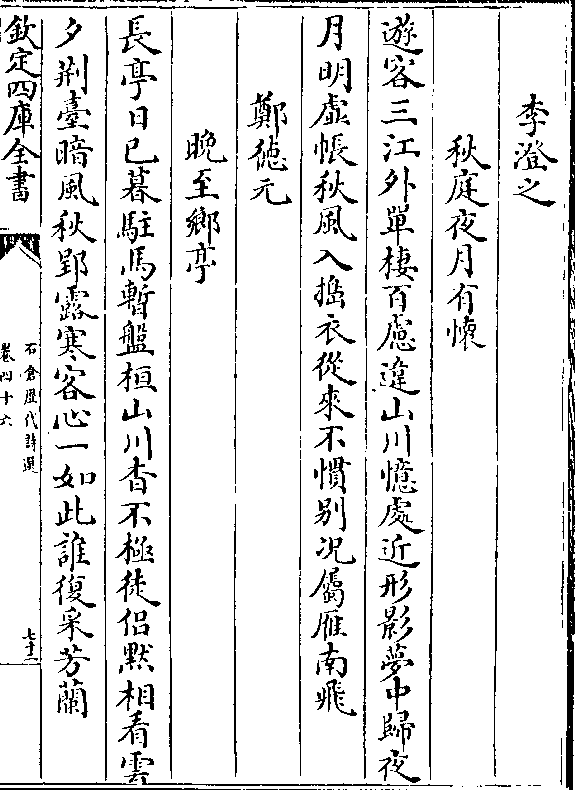 李澄之
秋庭夜月有懐
遊客三江外單棲百慮違山川憶處近形影夢中歸夜
月明虛帳秋風入搗衣從來不慣别况屬雁南飛
鄭徳元
晚至鄉亭
長亭日已暮駐馬暫盤桓山川杳不極徒侣默相看雲
夕荆臺暗風秋郢露寒客心一如此誰復采芳蘭
欽定四庫全書
石倉歴代詩選
卷四十六
七十二